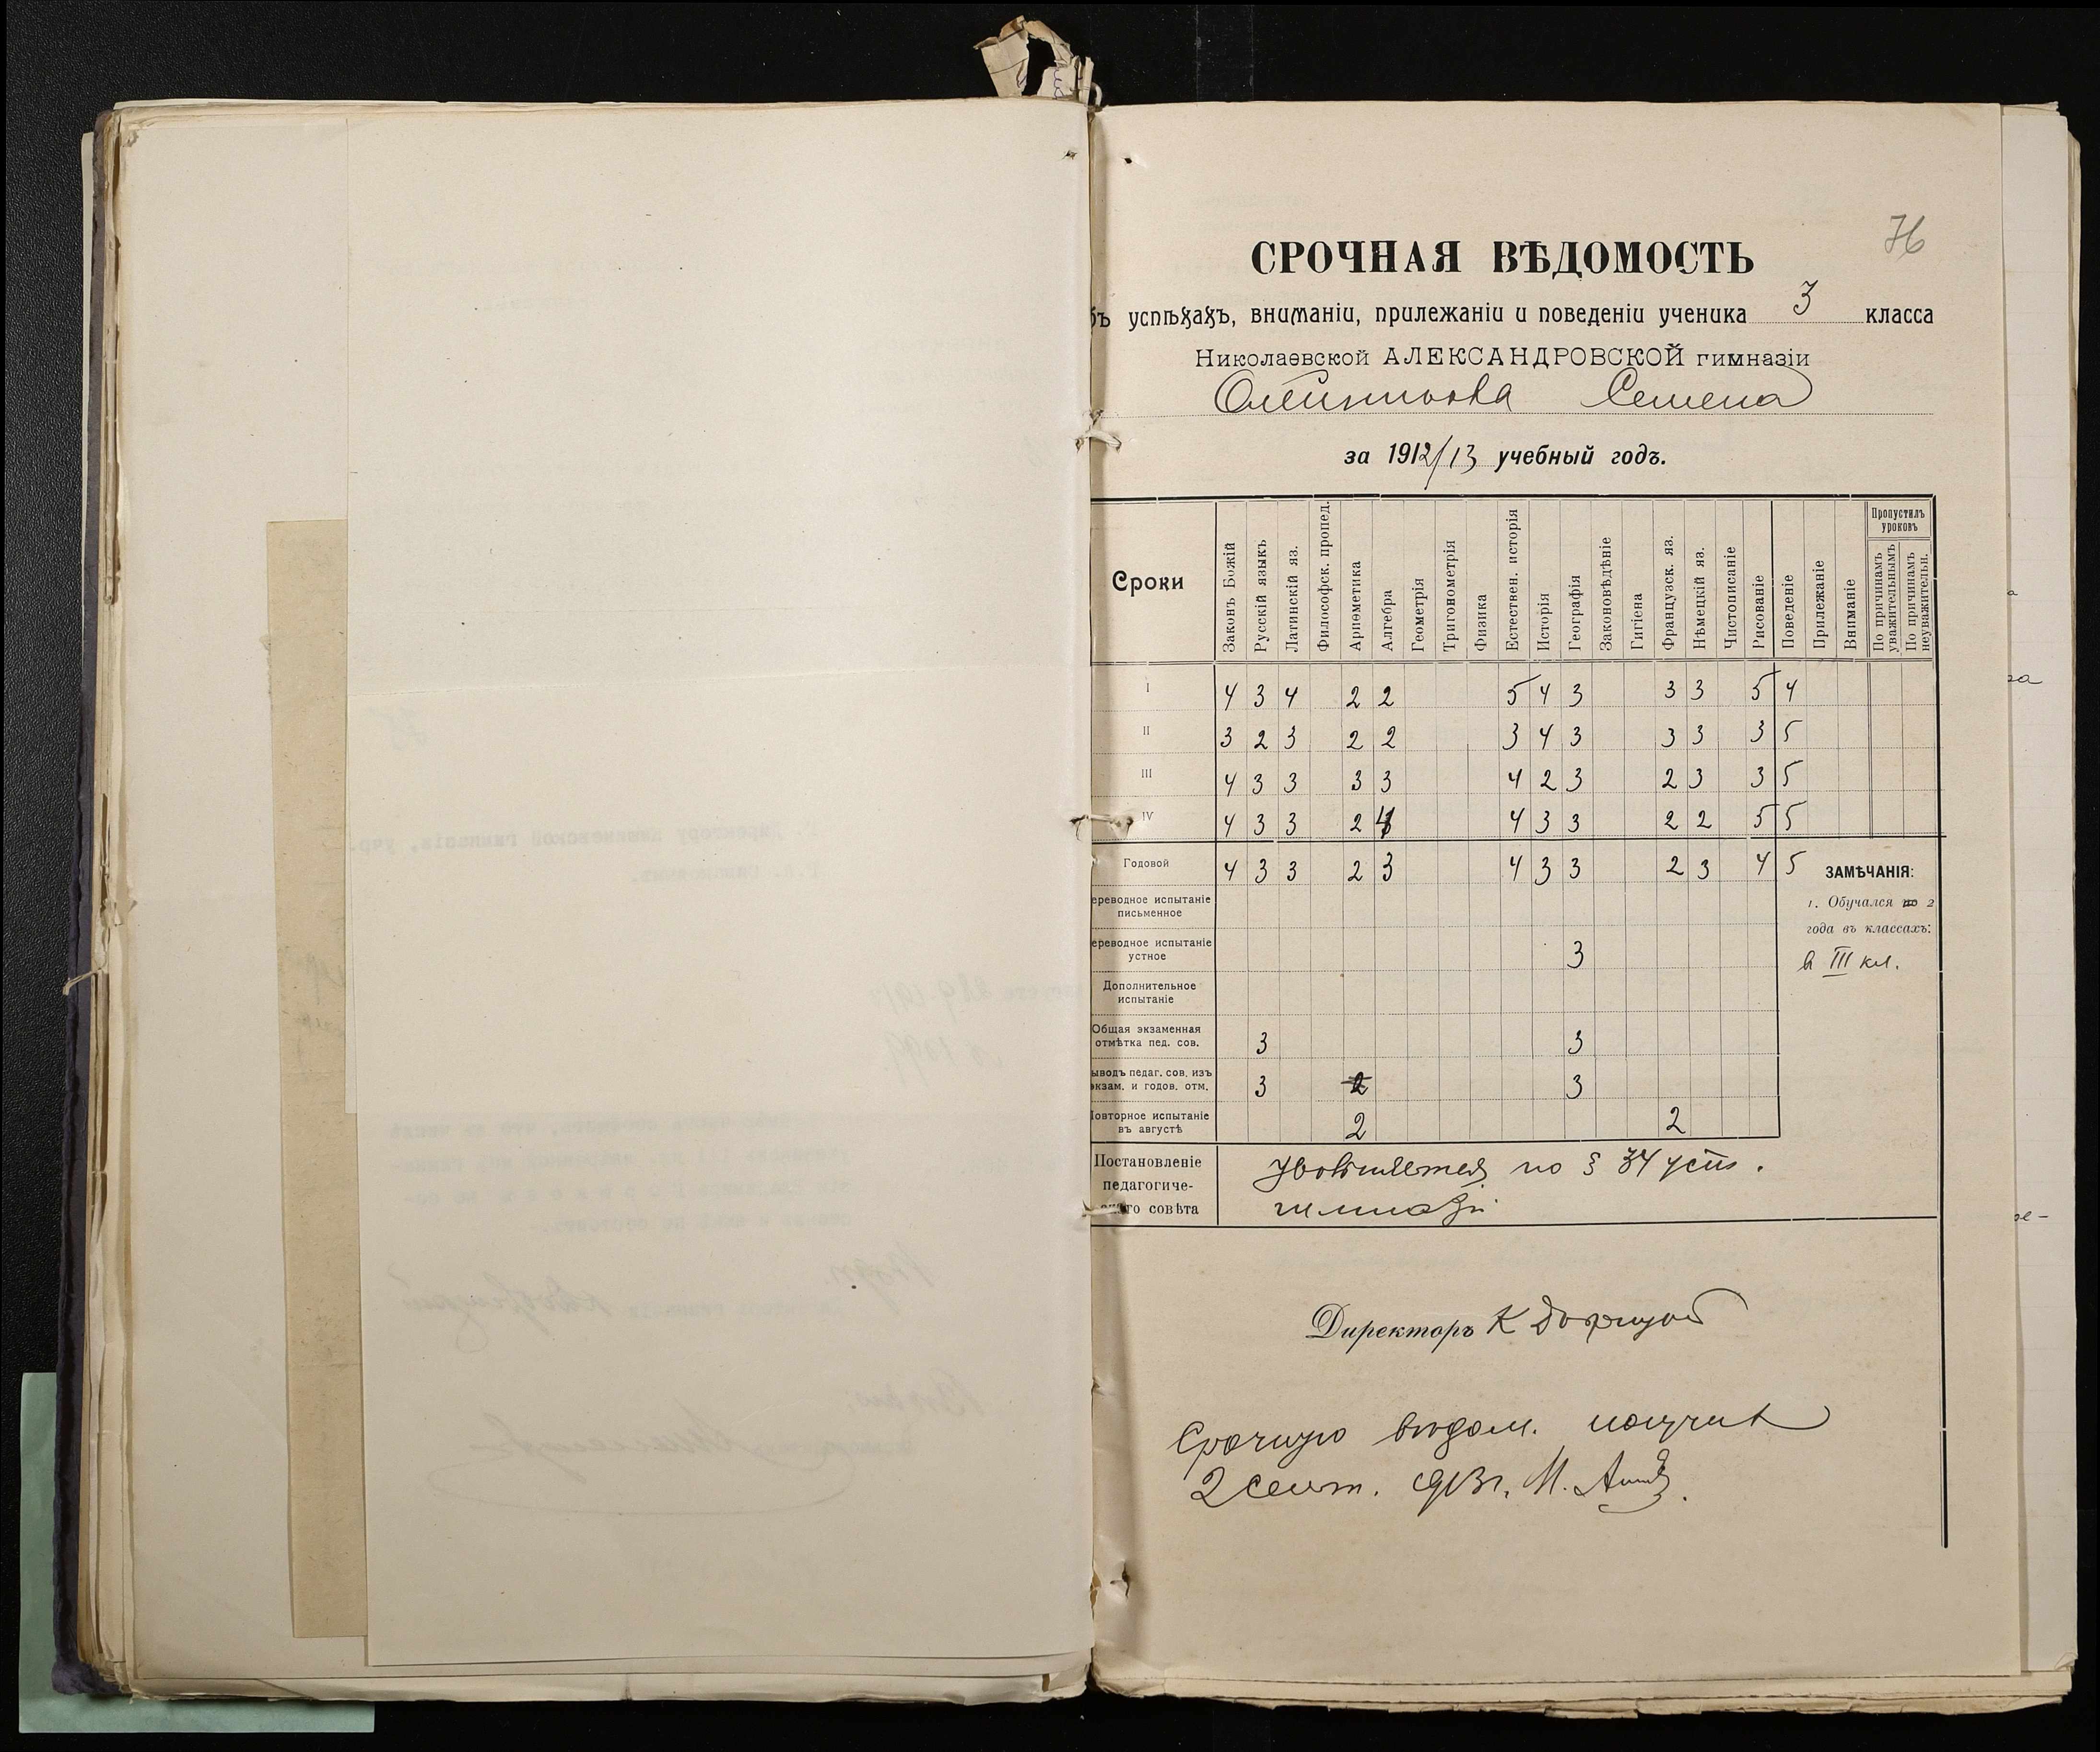 76
СРОЧНАЯ ВѢДОМОСТЬ
бъ успѣхахъ, вниманіи, прилежаніи и поведеніи ученика 3 класса
Николаевской АЛЕКСАНДРОВСКОЙ гимназіи
Олейникова Семена
за 1912/13 учебный годъ.
Сроки Законъ Божій Русскій языкъ Латинскій яз. Философск. пропед. Ариѳметика Алгебра Геометрія Тригонометрія Физика Естествен. исторія Исторія Географія Законовѣдѣніе Гигіена Французск. яз. Нѣмецкій яз. Чистописаніе Рисованіе Поведеніе Прилежаніе Вниманіе
Пропустилъ уроковъ
По причинамъ уважительнымъ
По причинамъ неуважительн.
I 4 3 4 2 2 5 4 3 3 3 5 4
II 3 2 3 2 2 3 4 3 3 3 3 5
III 4 3 3 3 3 4 2 3 2 3 3 5
IV 4 3 3 2 4 4 3 3 2 2 5 5
Годовой 4 3 3 2 3 4 3 3 2 3 4 5
ЗАМѢЧАНІЯ:
1. Обучался по 2
года въ классахъ:
в III кл.
ереводное испытаніе
письменное
ереводное испытаніе
устное 3
Дополнительное
испытаніе
Общая экзаменная
отмѣтка пед. сов. 3 3
ыводъ педаг. сов. изъ
экзам. и годов. отм. 3 2 3
Повторное испытаніе
въ августѣ 2 2
Постановленіе
педагогиче-
скаго совѣта
увольняется по § 34 уст.
гимназіи
Директоръ К
Срочную вѣдом. получил
2 сент. 1913 г. М.